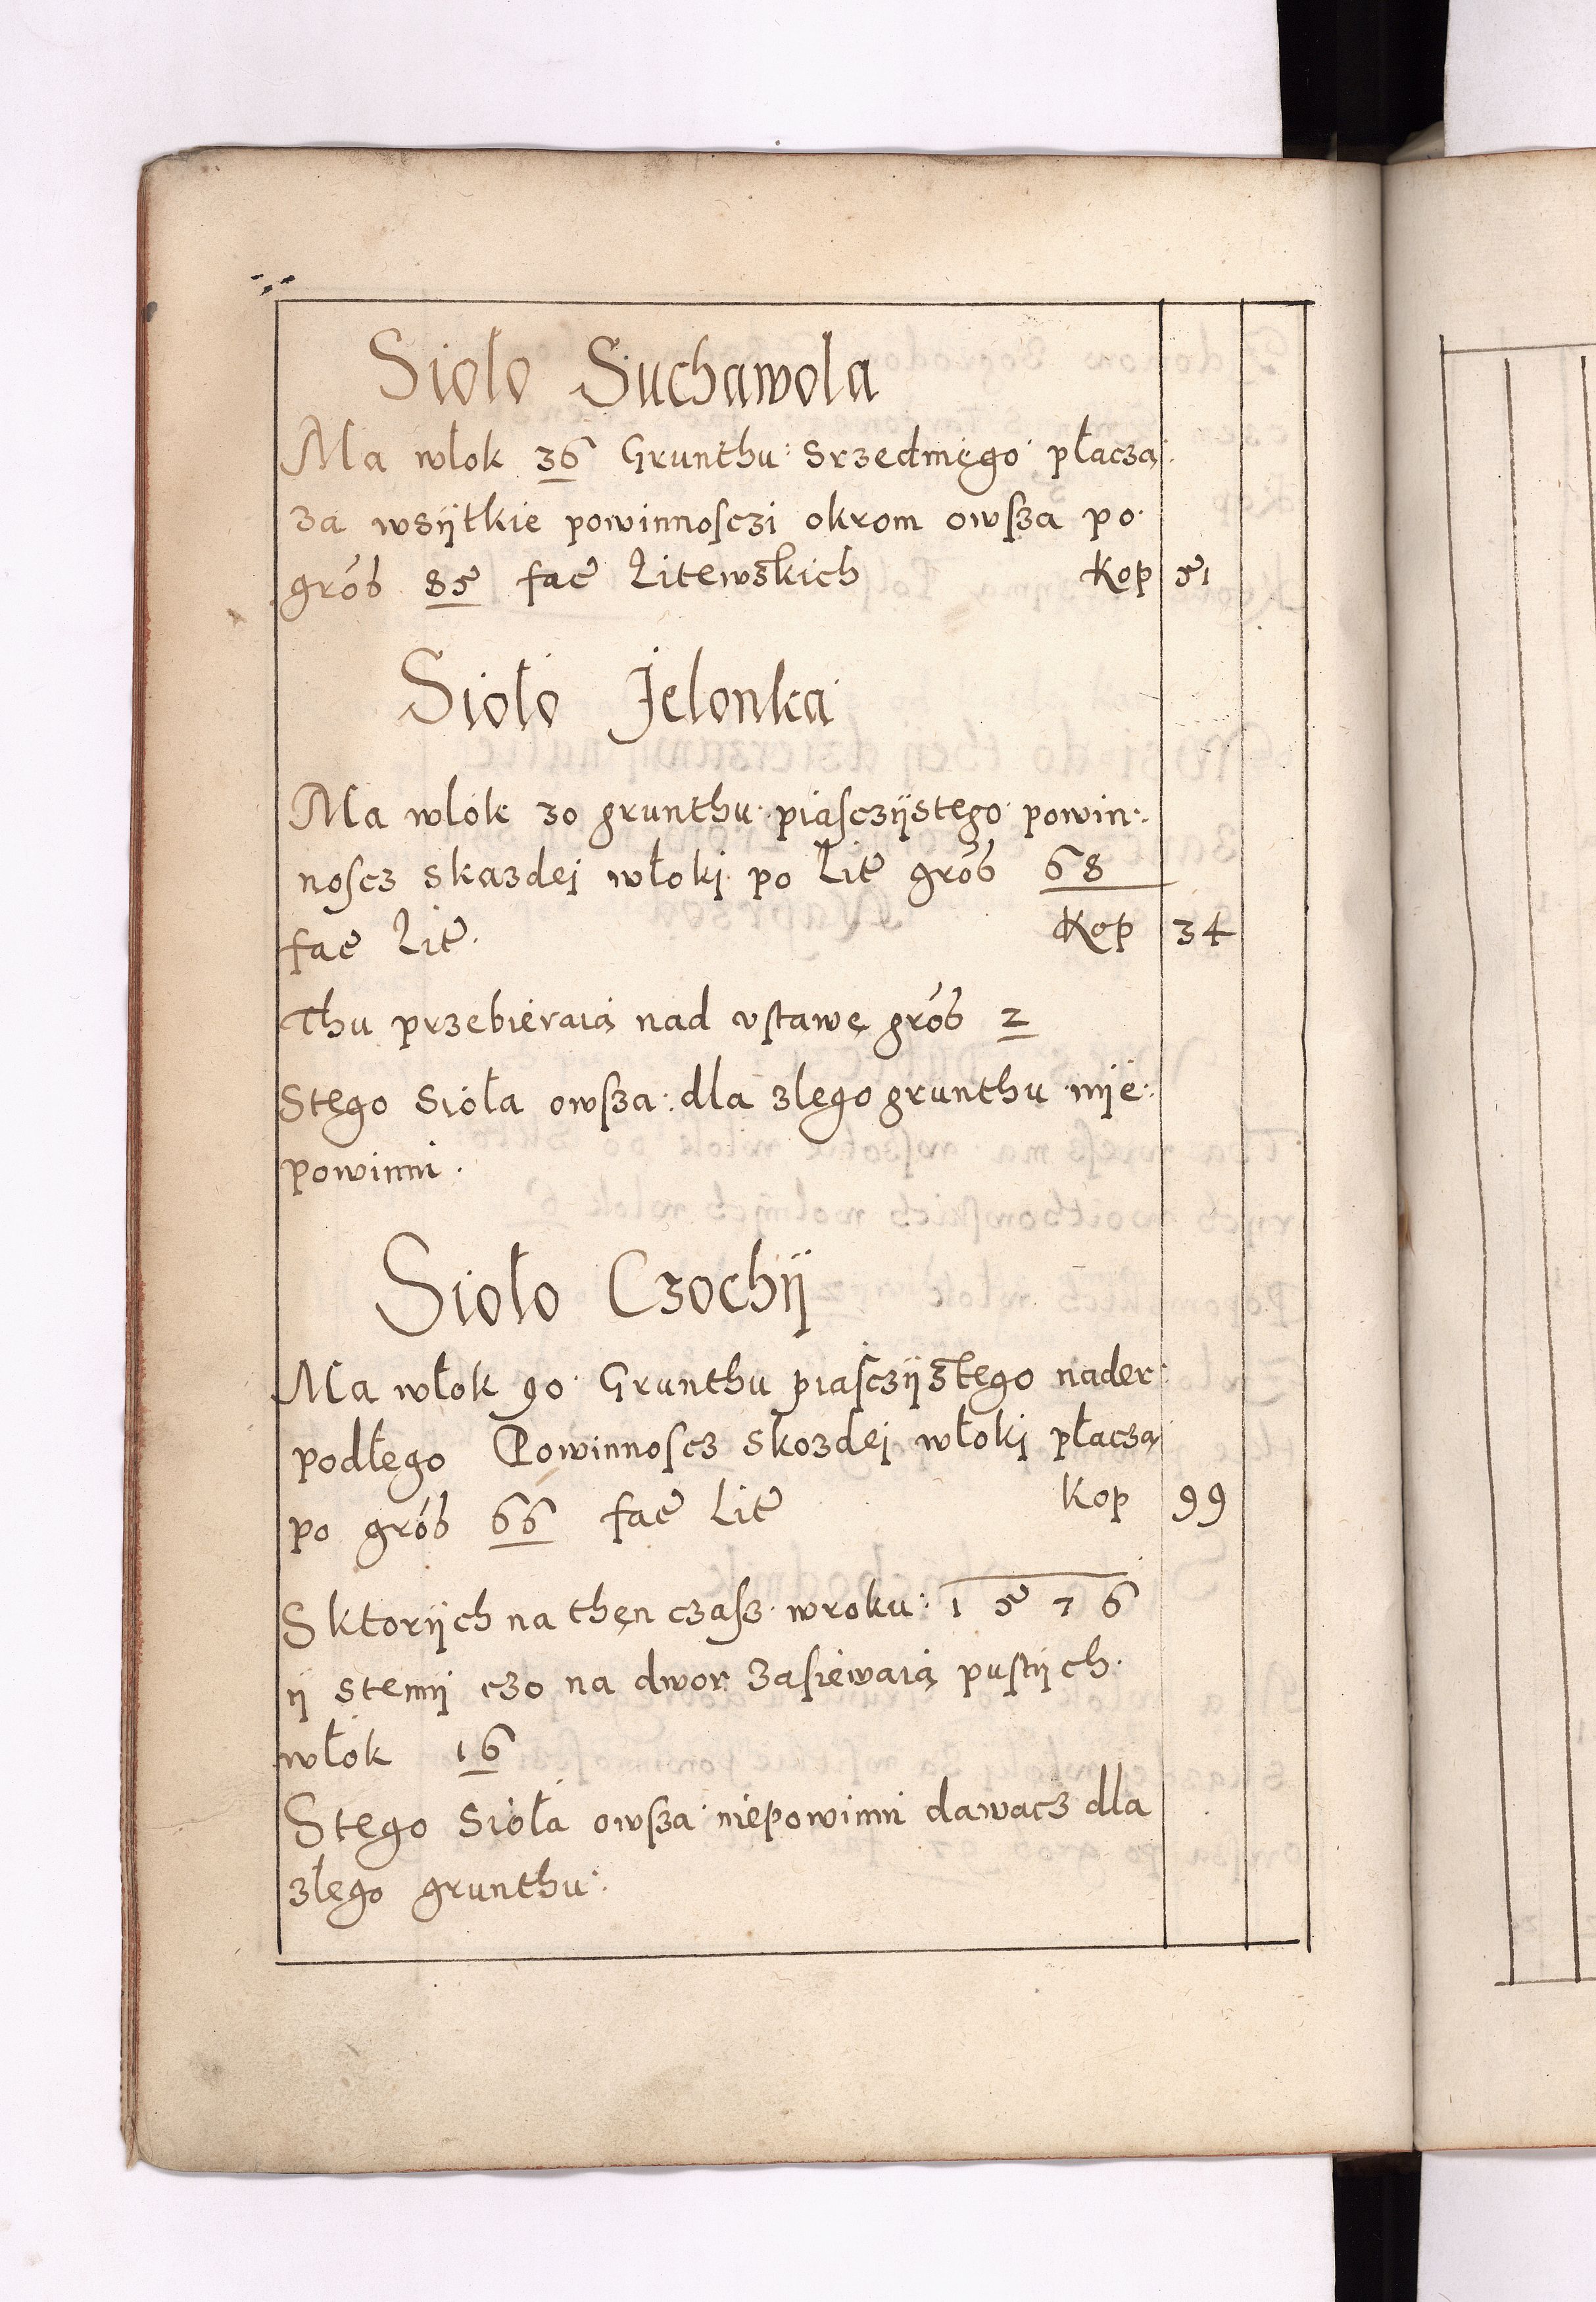 Sioło Suchawola
Ma włok 36 Grunthu srzedniego płaczą
za wsÿtkie powinnosczi okrom owsza po
grós 85 fac Litewskich Kop 51
Sioło Jelonka
Ma włók 30 grunthu piasczÿstego powin:
noscz skazdej włoki po Lit grós 68
fac Lit Kop 34
Thu przebieraią nad vstawę grós 2
Stego Sioła owsza dla złego grunthu nie
powinni.
Sioło Czochÿ
Ma włok 90 Grunthu piasczÿstego nader
podłego Powinnoscz skozdei włoki płaczą
po grós 66 fac Lit Kop 99
Sktorÿch na then czasz wroku: 1576
ÿ stemÿ czo na dwor zasiewaią pustÿch
włók 16
Stego Sioła owsza niepowinni dawacz dla
złego grunthu: